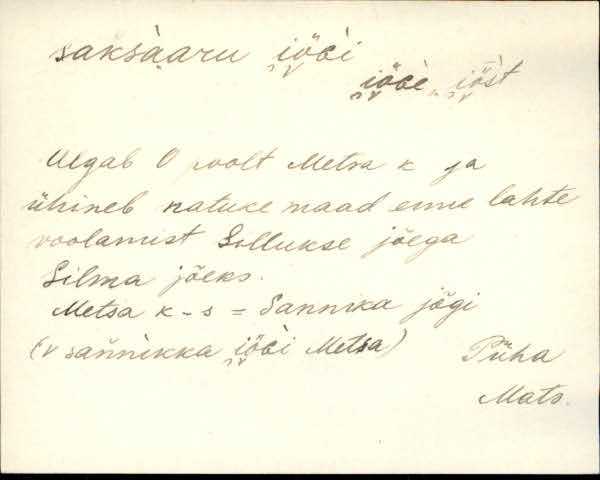 saksàaru i̬öᴃ̀i
i̬öᴃè, i̬öst
Algab O poolt Metsa k ja
ühineb natuke maad enne lahte
voolamist Sollukse jõega
Silma jõeks.
Metsa k-s = Sannika jõgi
(v sannìkka i̬öᴃ̀i Metsa)
Püha
Mats.